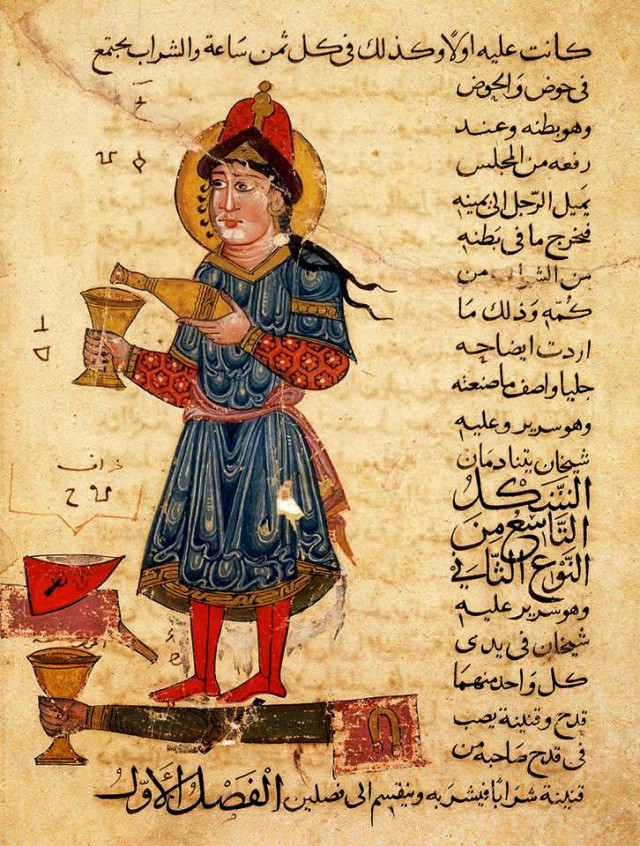 كانت عليه اولًا وكذلك في كل ثمن ساعة والشراب يجتمع
في حوض والحوض
وهو بطنه وعند
رفعه من المجلس
يميل الرجل الى يمينه
فيخرج ما في بطنه
من الشراب من
كمّه وذلك ما
اردت ايضاحه
جليا واصف ما صنعته
وهو سرير وعليه
شيخان يتنادمان
الشكل
التاسع من
النوع الثاني
وهو سرير عليه
شيخان في يدى
كل واحد منهما
قدح وقنينة يصب
في قدح صاحبه من
قنينة شرابًا فيشربه وينقسم الى فصلين الفصل الاول